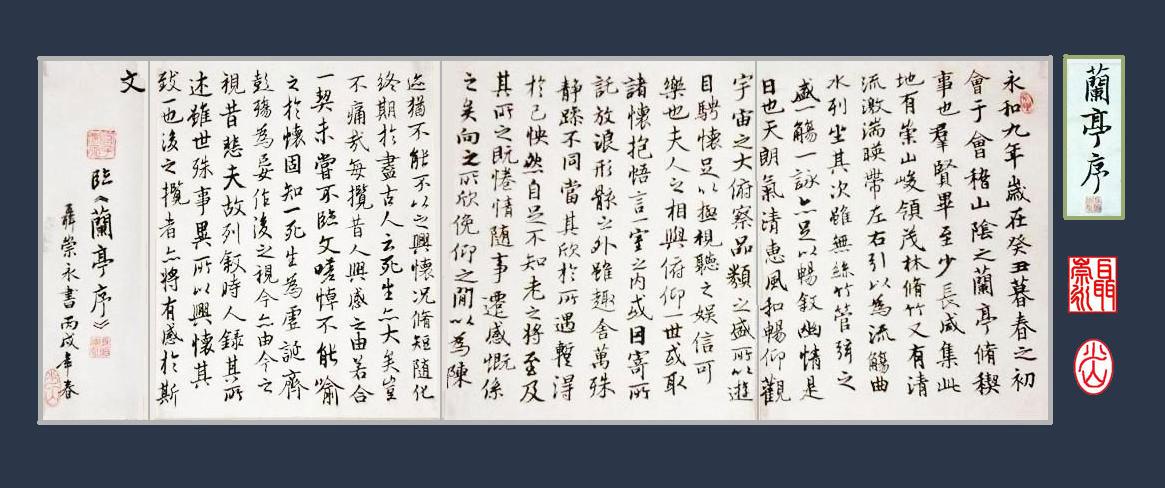 蘭亭序
永和九年歲在癸丑暮春之初
會于會稽山陰之蘭亭脩禊
事也羣賢畢至少長咸集此
地有崇山峻領茂林脩竹又有清
流激湍暎帶左右引以為流觴曲
水列坐其次雖無絲竹管弦之
盛一觴一詠亦足以暢敘幽情是
日也天朗氣清惠風和暢仰觀
宇宙之大俯察品類之盛所以遊
目騁懷足以極視聽之娛信可
樂也夫人之相與俯仰一世或取
諸懷抱悟言一室之內或因寄所
託放浪形骸之外雖趣舍萬殊
靜躁不同當其欣於所遇暫得
於己怏然自足不知老之將至及
其所之既惓情隨事遷感慨係
之矣向之所欣俛仰之間以為陳
迹猶不能不以之興懷況脩短隨化
終期於盡古人云死生亦大矣豈
不痛哉每攬昔人興感之由若合
一契未嘗不臨文嗟悼不能喻
之於懷固知一死生為虛誕齊
彭殤為妄作後之視今亦由今之
視昔悲夫故列敘時人錄其所
述雖世殊事異所以興懷其
致一也後之攬者亦將有感於斯
文
臨《蘭亭序》
聶崇永書 丙戌年春